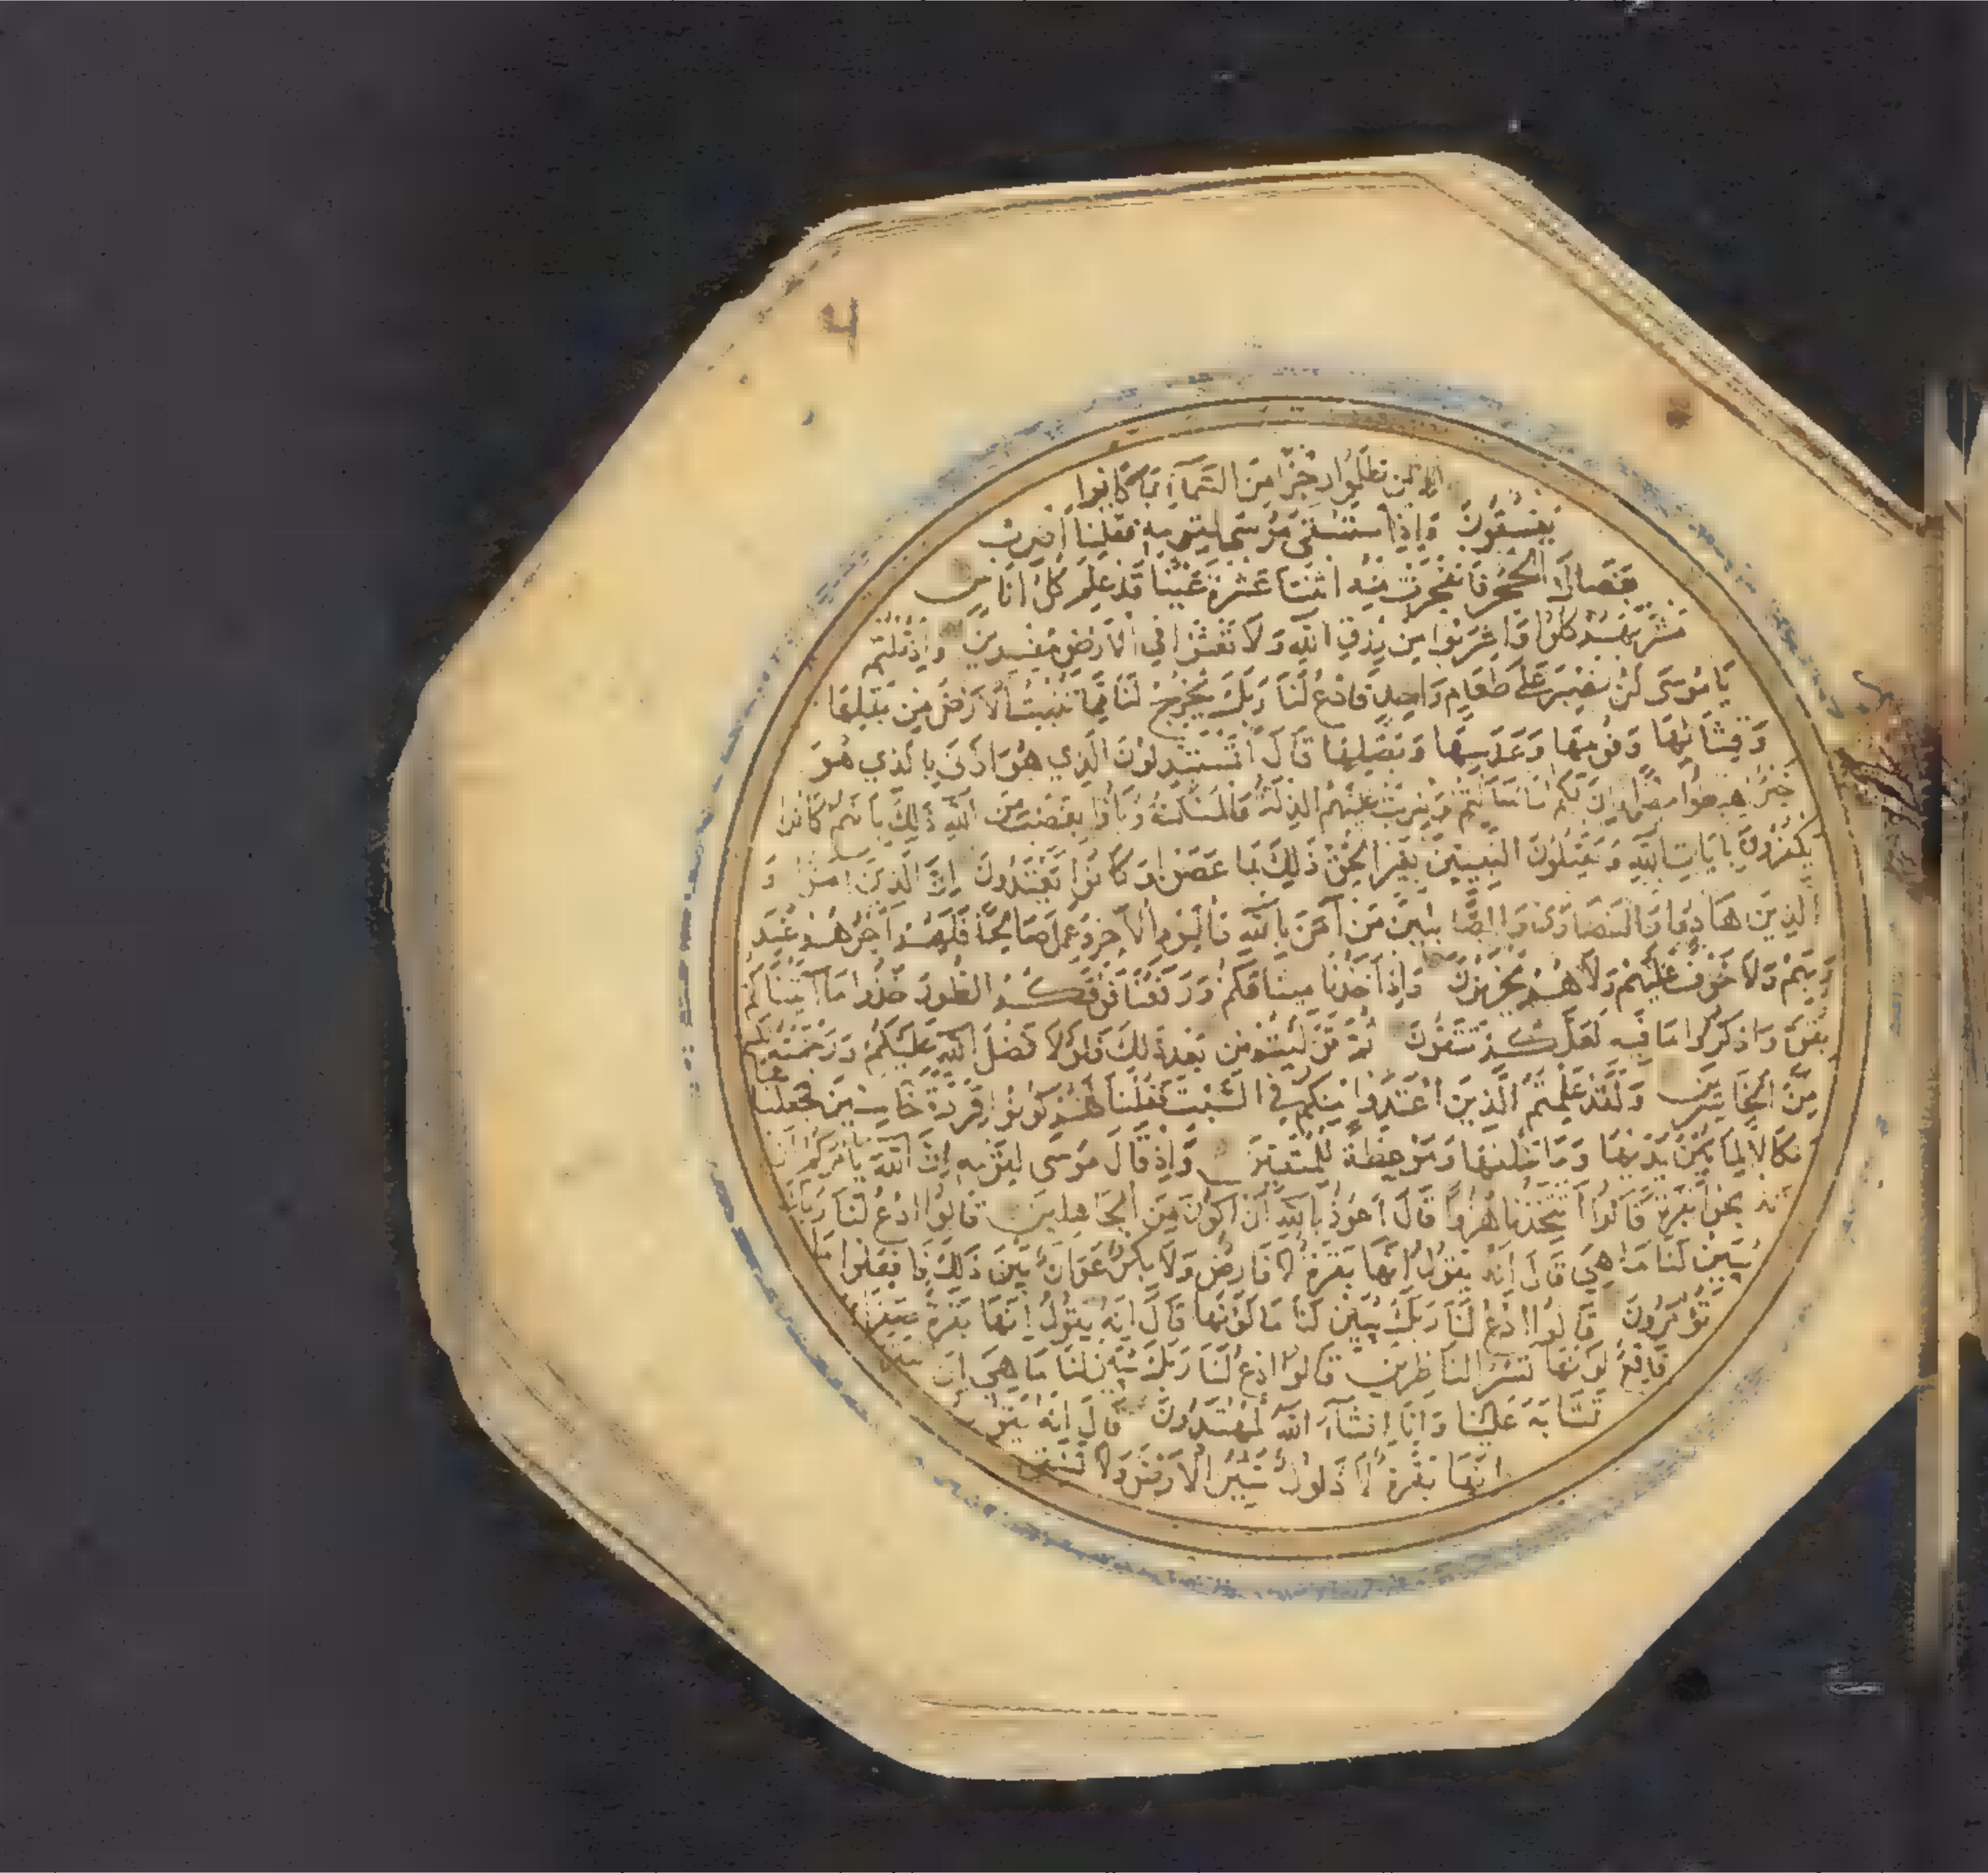 الذين ظلموا رجزا من السمآء بما كانوا
يفسقون واذا ستسقى موسى لقومه فقلنا اضرب
بعصاك الحجر فانفجرت منه اثنتا عشرة عينا قد علم كل اناس
مشربهم كلوا واشربوا من رزق الله ولا تعثوا في الارض مفسدين واذ قلتم
يا موسى لن نصبر على طعام واحد فادع لنا ربك يخرج لنا مما تنبت الارض من بقلها
وقثائها وفومها وعدسها وبصلها قال اتستبدلون الذي هو ادنى بالذي هو
خير اهبطوا مصرا فان لكم ما سالتم وضربت عليهم الذلة والمسكنة وبآؤا بغضب من الله ذلك بانهم كانوا
يكفرون بايات الله ويقتلون النبيين بغير الحق ذلك بما عصوا وكانوا يعتدون ان الذين امنوا و
الذين هادوا والنصارى والصابئين من آمن بالله واليوم الآخر وعمل صالحا فلهم اجرهم عند
ربهم ولا خوف عليهم ولا هم يحزنون واذ اخذنا ميثاقكم ورفعنا فوقكم الطور خذوا ما آتيناكم
بقوة واذكروا ما فيه لعلكم تتقون ثم توليتم من بعد ذلك فلولا فضل الله عليكم ورحمته لكنتم
من الخاسرين ولقد علمتم الذين اعتدوا منكم في السبت فقلنا لهم كونوا قردة خاسئين فجعلناها
نكالا لما بين يديها وما خلفها وموعظة للمتقين واذ قال موسى لقومه ان الله يامركم ان
تذبحوا بقرة قالوا اتتخذنا هزوا قال اعوذ بالله ان اكون من الجاهلين قالوا ادع لنا ربك
يبين لنا ما هي قال انه يقول انها بقرة لا فارض ولا بكر عوان بين ذلك فافعلوا ما
تؤمرون قالوا ادع لنا ربك يبين لنا ما لونها قال انه يقول انها بقرة صفرآء
فاقع لونها تسر الناظرين قالوا ادع لنا ربك يبين لنا ما هي ان
تشابه علينا وانا انشآء الله لمهتدون قال انه يقول
انها بقرة لا ذلول تثير الارض ولا تسقى